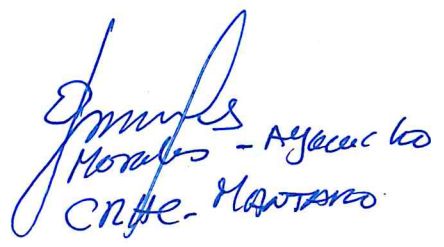 Morales - Ayacucho
CRHC - MANTARO